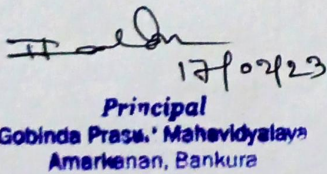 17/02/23
Principal
Gobinda Prasad Mahavidyalaya
Amarkanan, Bankura